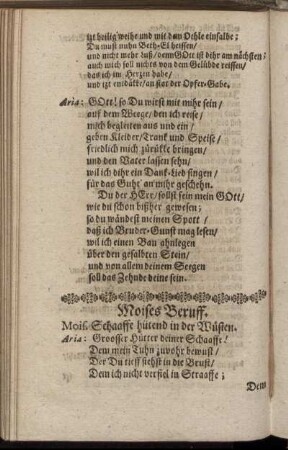 izt heilig weihe und wit dan Oehle einsalbe;
Du must nuhn Beth-El heissen/
und nicht mehr Lus/ denn GOtt ist dihr am nächsten:
auch wich soll nichts von dem Gelübde reissen/
das ich im Herzen habe/
und izt entdükke/ an stat der Opfer-Gabe.
Aria: GOtt! so Du wirst mit mihr sein/
auf dem Weege/ den ich reise/
mich begleiten aus und ein/
geben Kleider/ Trank und Speise/
friedlich mich zürükke bringen/
und den Vater lassen sehn/
wil ich dihr ein Dank-Lied singen/
für das Guht/ an mihr geschehn.
Du der HErr/ sollst sein mein GOtt/
wie du schon bißher gewesen;
so du wändest meinen Spott/
daß ich Bruder-Gunst mag lesen/
wil ich einen Bau ahnlegen
über den gesalbten Stein/
und von allem deinem Seegen
soll das Zehnde deine sein.
Moises Beruff.
Mois. Schaaffe hütend in der Wüsten.
Aria: Groosser Hütter deiner Schaaffe!
Dem mein Tuhn zuvohr bewust/
Der Du tieff siehst in die Brust/
Dem ich nicht verfiel in Straaffe;
Dem